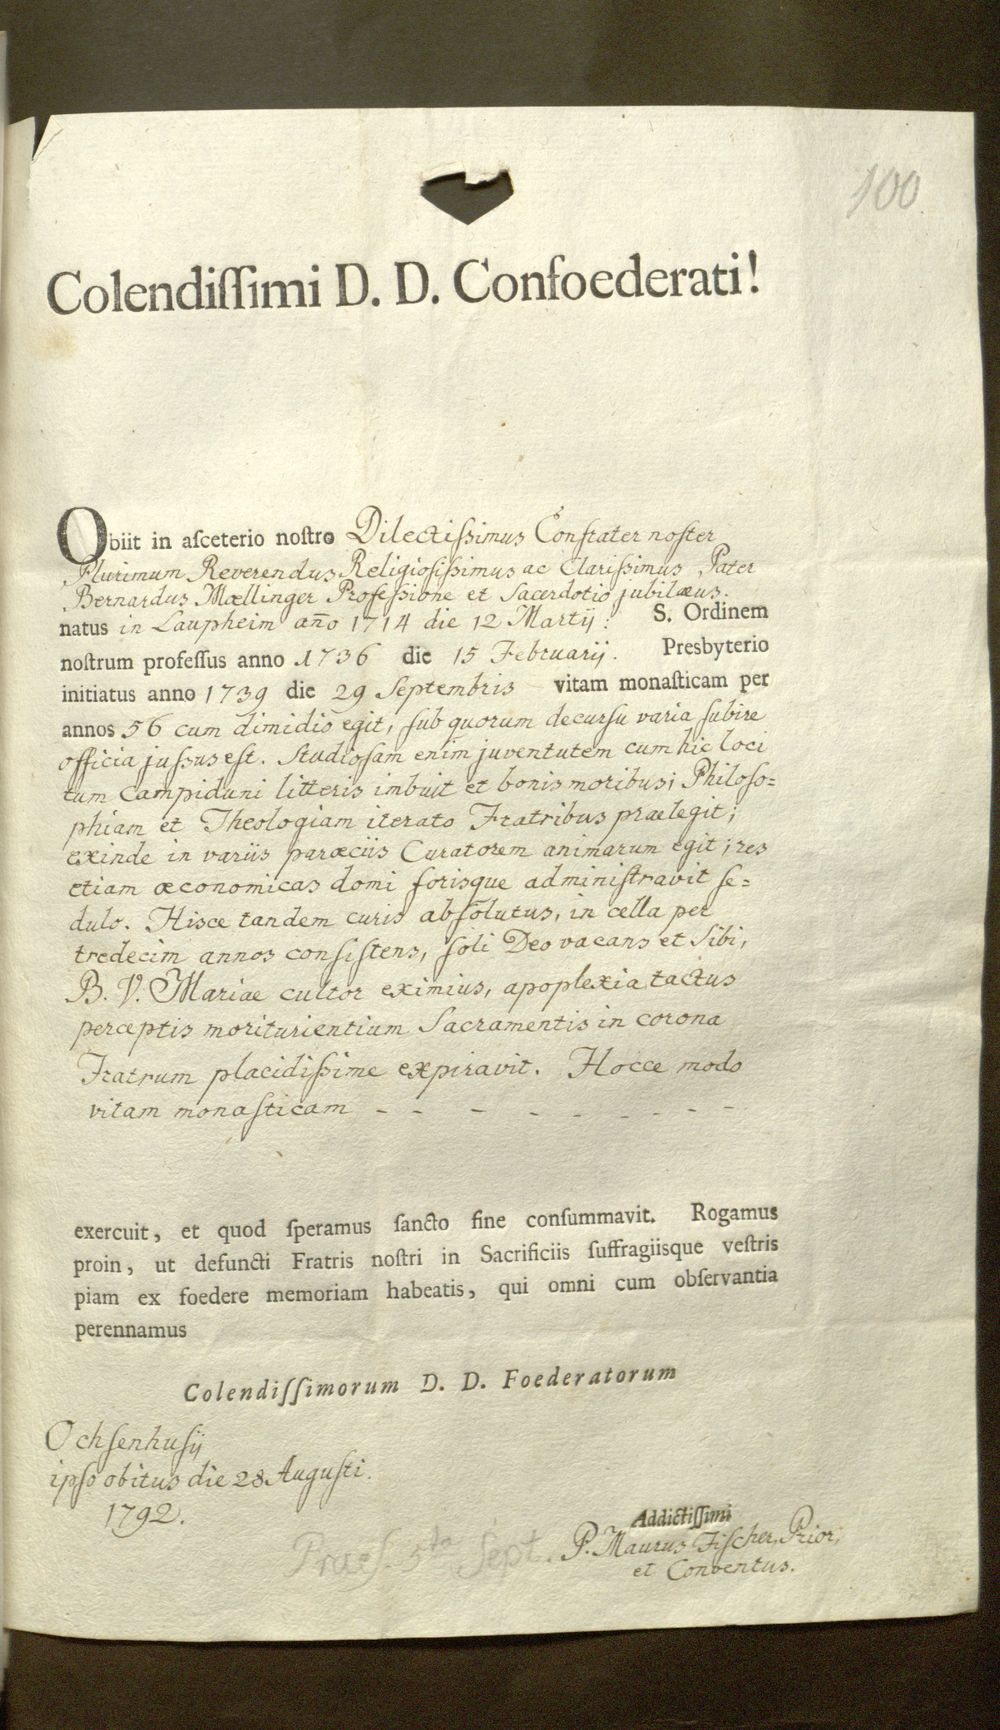 100
Colendiſſimi D. D. Confoederati!
Obiit in aſceterio noſtro Dilectiſsimus Confrater noſter
Plurimum Reverendus Religioſiſsimus ac Clariſsimus Pater
Bernardus Mællinger Profeſsione et Sacerdotio jubilæus.
natus in Laupheim an̄o 1714 die 12 Martij. S. Ordinem
noſtrum profeſſus anno 1736 die 15 Februarij. Presbyterio
initiatus anno 1739 die 29 Septembris vitam monaſticam per
annos 56 cum dimidio egit, ſub quorum decurſu varia ſubire
officia juſsus eſt. Studioſam enim juventutem cum hic loci
tum Campiduni litteris imbuit et bonis moribus; Philoſo=
phiam et Theologiam iterato Fratribus prælegit;
exinde in variis parœciis Curatorem animarum egit; res
etiam œconomicas domi forisque adminiſtravit ſe=
dulo. Hisce tandem curis abſolutus, in cella per
tredecim annos conſiſtens, ſoli Deo vacans et Sibi,
B. V. Mariae cultor eximius, apoplexia tactus
perceptis moriturientium Sacramentis in corona
Fratrum placidiſsime expiravit. Hocce modo
vitam monaſticam - - - - - - - - -
exercuit, et quod ſperamus ſancto fine conſummavit. Rogamus
proin, ut defuncti Fratris noſtri in Sacrificiis ſuffragiisque veſtris
piam ex foedere memoriam habeatis, qui omni cum obſervantia
perennamus
Colendiſſimorum D. D. Foederatorum
Ochſenhuſij
ipso obitus die 28 Auguſti.
1792.
Addictiſſimi
P. Maurus Fiſcher, Prior,
et Conventus.
Praeſ 5ta Sept.